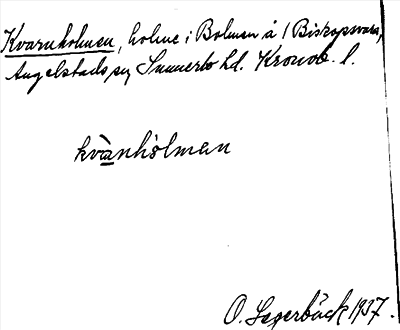 Kvarnholmen, holme i Bolmen å 1 Biskopsvara,
Angelstads sn Sunnerbo hd. Kronob. l.
kvànhòlman
O. Lagerbäck 1937.